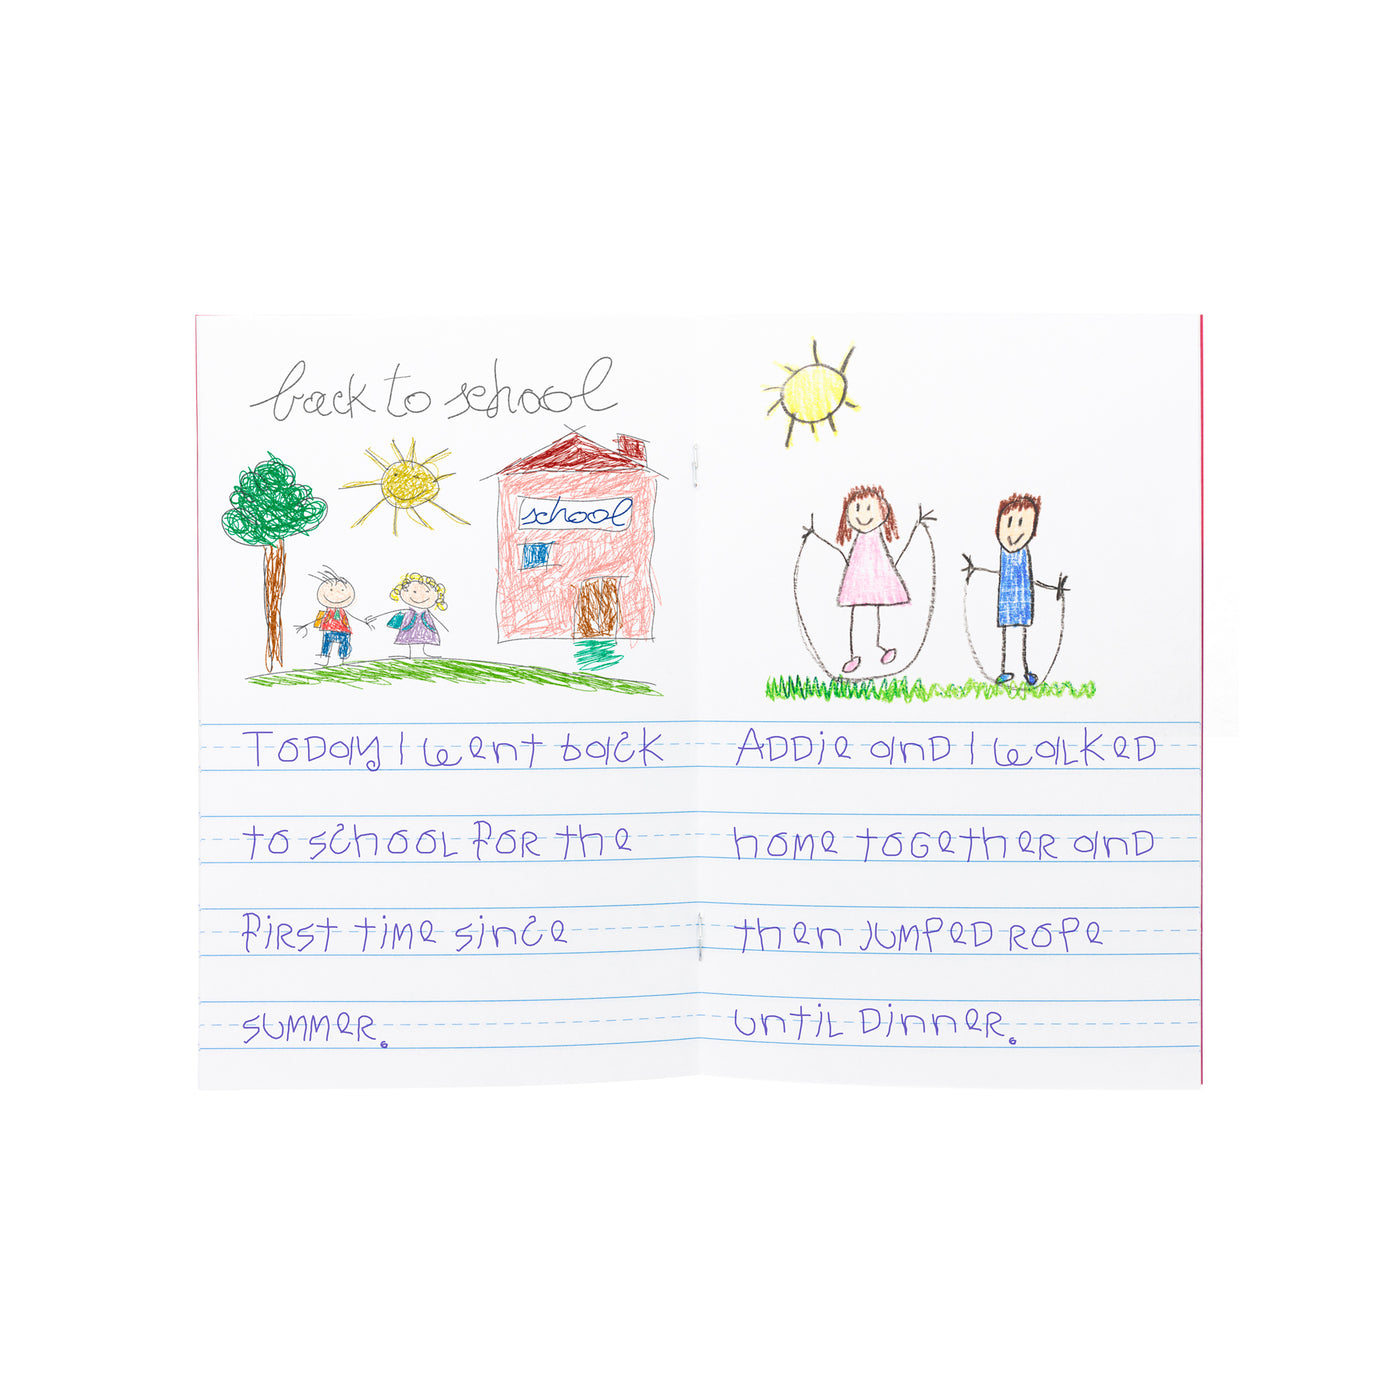 back to school
school
Today I went back
to school for the
first time since
summer.
Addie and I walked
home together and
then jumped rope
until dinner.